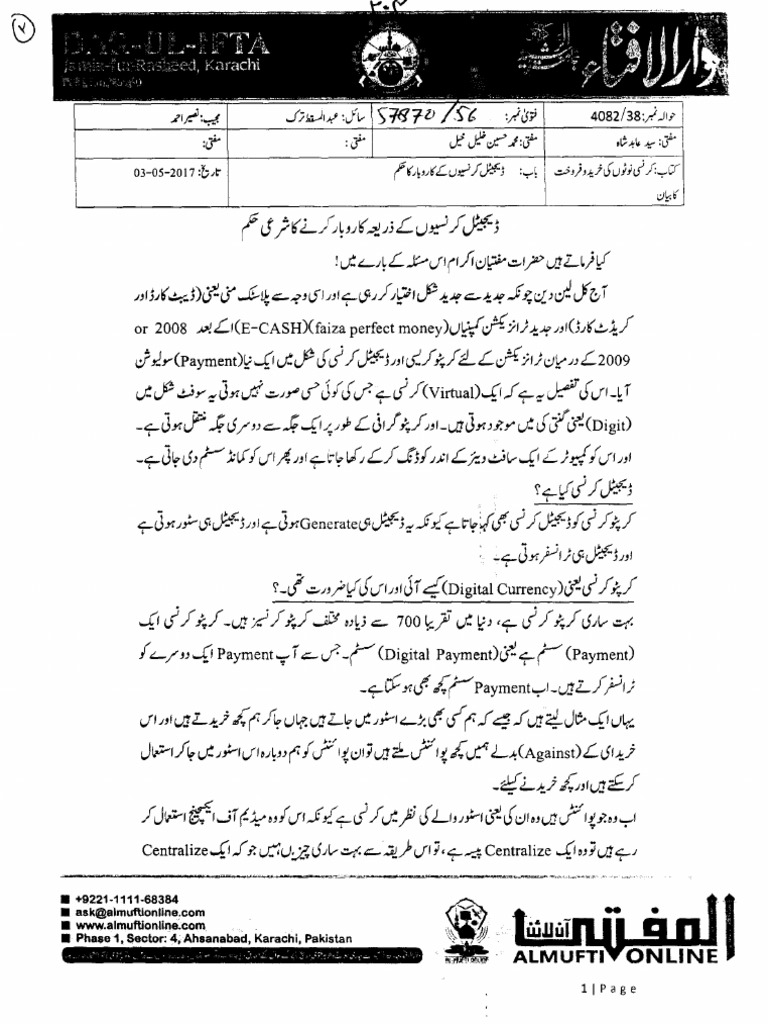 ۷
۲۰۴
DAR-UL-IFTA
Jamia-tur-Rasheed, Karachi
دار الافتاء
حوالہ نمبر: 4082/38
فتویٰ نمبر: 57870/56
سائل: عبد المسقط ترک
مجیب: نصیر احمد
مفتی: سید عابد شاہ
مفتی: محمد حسین خلیل خیل
مفتی:
مفتی:
کتاب: کرنسی نوٹوں کی خرید و فروخت کا بیان
باب: ڈیجیٹل کرنسیوں کے کاروبار کا حکم
تاریخ: 03-05-2017
ڈیجیٹل کرنسیوں کے ذریعہ کاروبار کرنے کا شرعی حکم
کیا فرماتے ہیں حضرات مفتیان اکرام اس مسئلہ کے بارے میں!
آج کل لین دین چونکہ جدید سے جدید شکل اختیار کر رہی ہے اور اسی وجہ سے پلاسٹک منی یعنی (ڈیبٹ کارڈ اور
کریڈٹ کارڈ) اور جدید ٹرانزیکشن کمپنیاں (faiza perfect money)(E-CASH) اکے بعد 2008 or
2009 کے درمیان ٹرانزیکشن کے لئے کرپٹو کریسی اور ڈیجیٹل کرنسی کی شکل میں ایک نیا (Payment) سولیوشن
آیا۔ اس کی تفصیل یہ ہے کہ ایک (Virtual) کرنسی ہے جس کی کوئی حسی صورت نہیں ہوتی یہ سوفٹ شکل میں
(Digit) یعنی گنتی کی میں موجود ہوتی ہیں۔ اور کرپٹو گرافی کے طور پر ایک جگہ سے دوسری جگہ منتقل ہوتی ہے۔
اور اس کو کمپیوٹر کے ایک سافٹ ویئر کے اندر کوڈنگ کر کے رکھا جاتا ہے اور پھر اس کو کمانڈ سسٹم دی جاتی ہے۔
ڈیجیٹل کرنسی کیا ہے؟
کرپٹو کرنسی کو ڈیجیٹل کرنسی بھی کہا جاتا ہے کیونکہ یہ ڈیجیٹل ہی Generate ہوتی ہے اور ڈیجیٹل ہی سٹور ہوتی ہے
اور ڈیجیٹل ہی ٹرانسفر ہوتی ہے۔
کرپٹو کرنسی یعنی (Digital Currency) کیسے آئی اور اس کی کیا ضرورت تھی۔؟
بہت ساری کرپٹو کرنسی ہے، دنیا میں تقریبا 700 سے ذیادہ مختلف کرپٹو کرنسیز ہیں۔ کرپٹو کرنسی ایک
(Payment) سسٹم ہے یعنی (Digital Payment) سسٹم۔ جس سے آپ Payment ایک دوسرے کو
ٹرانسفر کرتے ہیں۔ اب Payment سسٹم کچھ بھی ہو سکتا ہے۔
یہاں ایک مثال لیتے ہیں کہ جیسے کہ ہم کسی بھی بڑے اسٹور میں جاتے ہیں جہاں جا کر ہم کچھ خریدتے ہیں اور اس
خریدای کے (Against) بدلے ہمیں کچھ پوائنٹس ملتے ہیں تو ان پوائنٹس کو ہم دوبارہ اس اسٹور میں جا کر استعمال
کر سکتے ہیں اور کچھ خریدنے کیلئے۔
اب وہ جو پوائنٹس ہیں وہ ان کی یعنی اسٹور والے کی نظر میں کرنسی ہے کیونکہ اس کو وہ میڈیم آف ایکسچینج استعمال کر
رہے ہیں تو وہ ایک Centralize پیسہ ہے، تو اس طریقہ سے بہت ساری چیزیں ہمیں جو کہ ایک Centralize
+9221-1111-68384
ask@almuftionline.com
www.almuftionline.com
Phase 1, Sector: 4, Ahsanabad, Karachi, Pakistan
المفتی آن لائن
ALMUFTI ONLINE
1 | Page